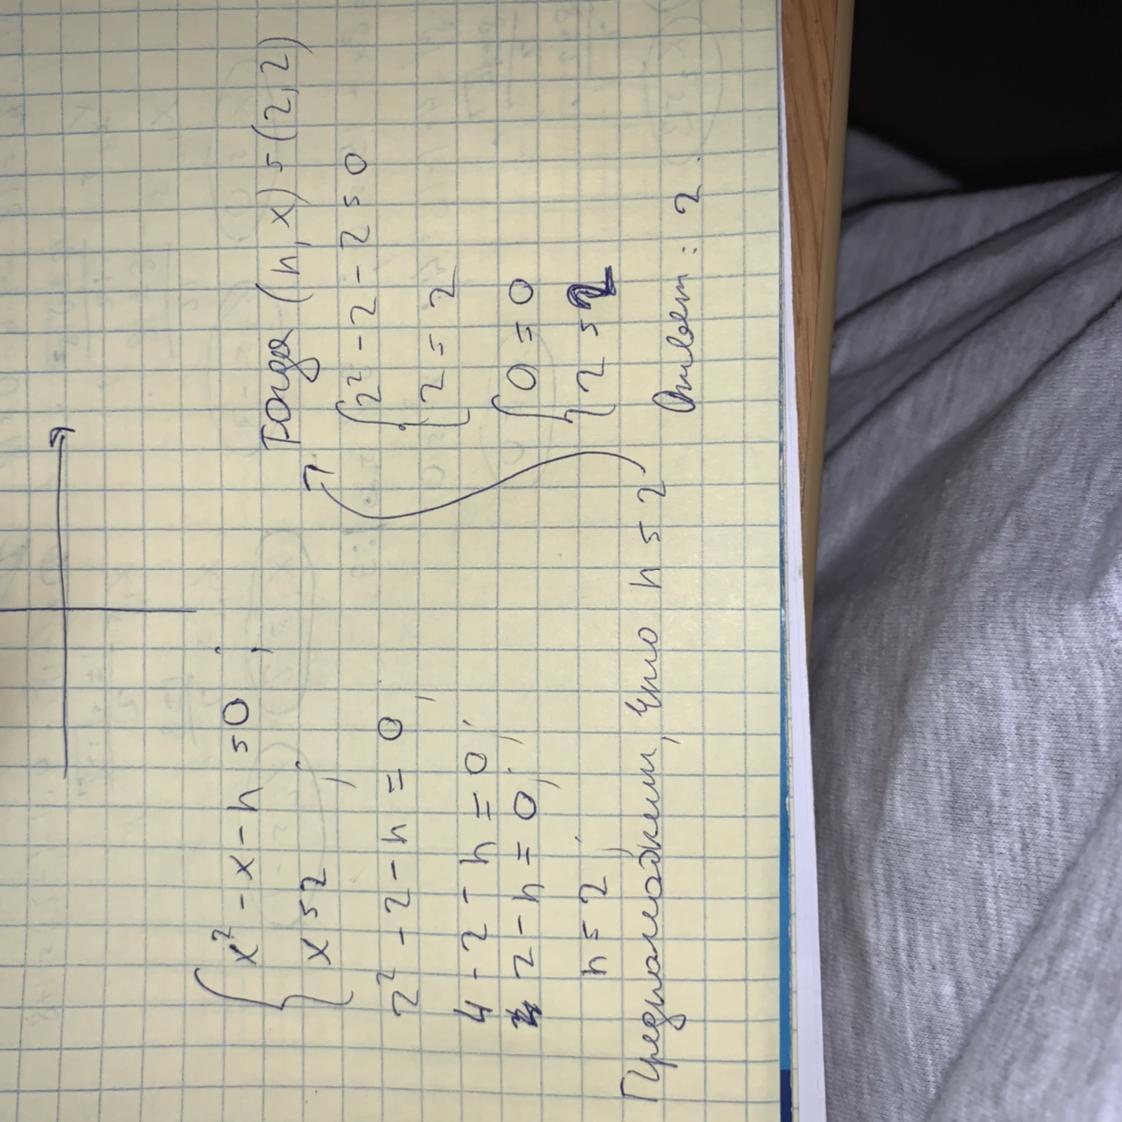 x² - x - n = 0;
x = 2;
2² - 2 - n = 0,
4 - 2 - n = 0;
2 - n = 0;
n = 2,
Предположим, что n = 2
Тогда (n, x) = (2, 2)
2² - 2 - 2 = 0
2 = 2
0 = 0
2 = 2
Ответ: 2.